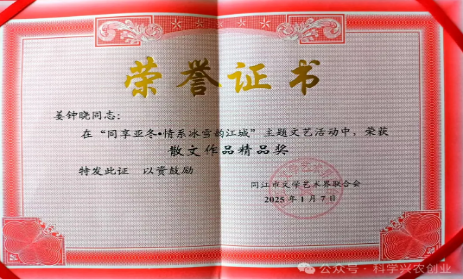 荣誉证书
姜钟晓同志：
在“同享亚冬•情系冰雪韵江城”主题文艺活动中，荣获
散文作品精品奖
特发此证 以资鼓励
同江市文学艺术界联合会
2025年1月7日
公众号·科学兴农创业